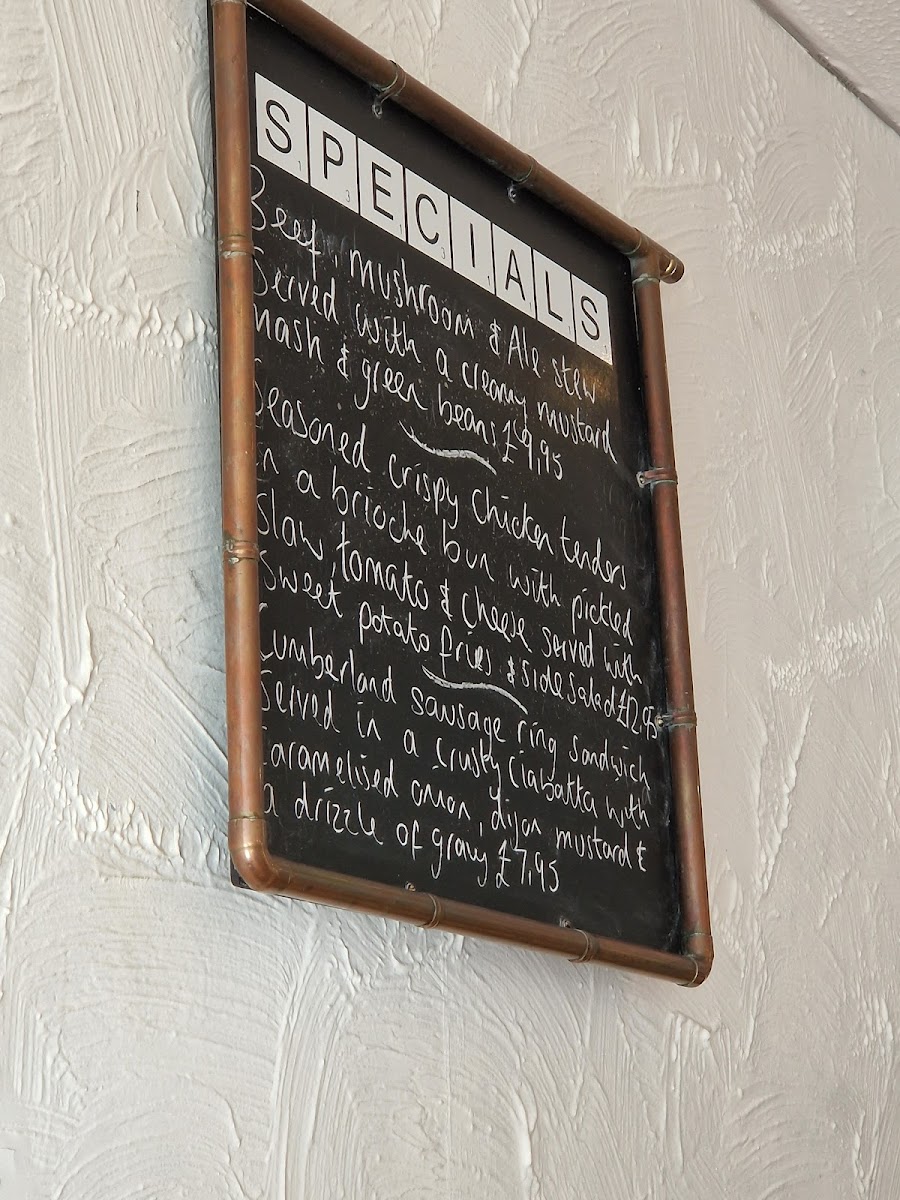 SPECIALS
Beef, mushroom & Ale stew
Served with a creamy mustard
mash & green beans £9.95
Seasoned crispy chicken tenders
in a brioche bun with pickled
Slaw, tomato & cheese served with
Sweet potato fries & side salad £12.95
Cumberland sausage ring sandwich
Served in a crusty ciabatta with
caramelised onion, dijon mustard &
a drizzle of gravy £7.95